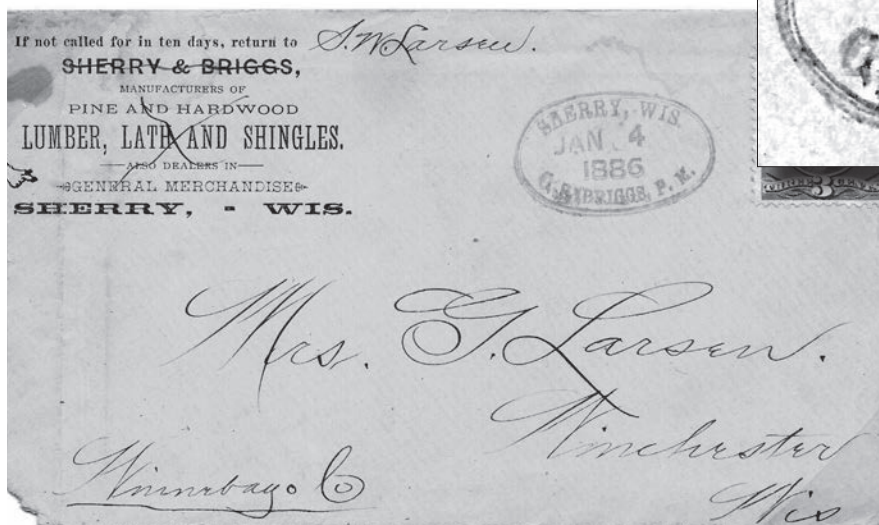 If not called for in ten days, return to S. W Larsen.
SHERRY & BRIGGS,
MANUFACTURERS OF
PINE AND HARDWOOD
LUMBER, LATH AND SHINGLES.
ALSO DEALERS IN
GENERAL MERCHANDISE
SHERRY, - WIS.
SHERRY, WIS.
JAN 4
1886
BRIGGS, P. M.
THREE 3 CENTS
Mrs. G. Larsen.
Winchester
Winnebago Co
Wis